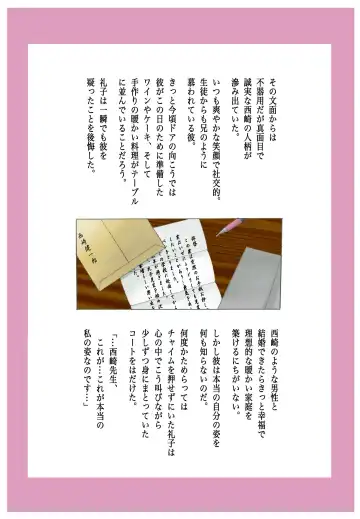 その文面からは
不器用だが真面目で
誠実な西崎の人柄が
滲み出ていた。
いつも爽やかな笑顔で社交的。
生徒からも兄のように
慕われている彼。
きっと今頃ドアの向こうでは
彼がこの日のために準備した
ワインやケーキ、そして
手作りの暖かい料理がテーブル
に並んでいることだろう。
礼子は一瞬でも彼を
疑ったことを後悔した。
西崎のような男性と
結婚できたらきっと幸福で
理想的な暖かい家庭を
築けるにちがいない。
しかし彼は本当の自分の姿を
何も知らないのだ。
何度かためらっては
チャイムを押せずにいた礼子は
心の中でこう叫びながら
少しずつ身にまとっていた
コートをはだけた。
「…西崎先生、
これが…これが本当の
私の姿なのです…」